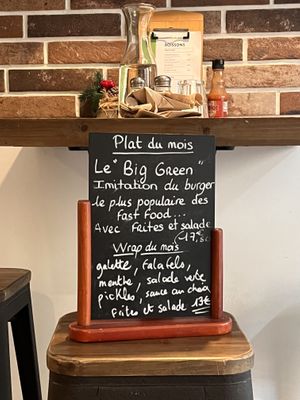 BOISSONS
Plat du mois
Le "Big Green"
Imitation du burger
le plus populaire des
Fast Food...
Avec Frites et salade
17,50€
Wrap du mois
galette, falafels,
menthe, salade verte
pickles, sauce au choix
Frites et salade 13€